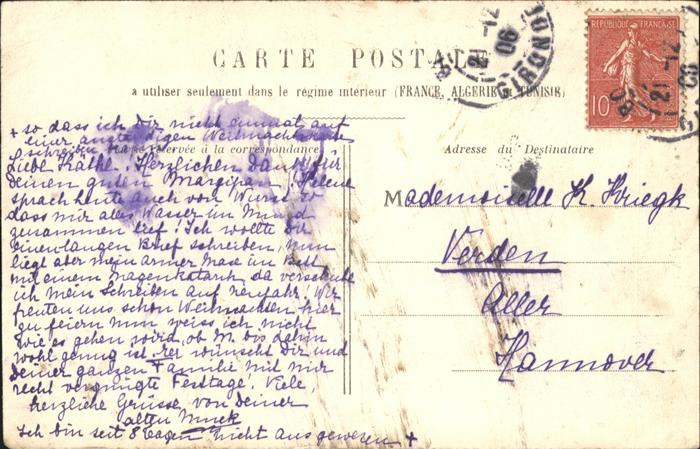 CARTE POSTALE
a utiliser seulement dans le régime intérieur (FRANCE, ALGERIE et TUNISIE)
RÉPUBLIQUE FRANÇAISE
10
21-12
06
GIRONDE
+ so dass ich Dir nicht einmal auf
einer anständigen Weihnachtskarte
schreiben
Partie réservée à la correspondance
Liebe Käthe, Herzlichen Dank für
deinen guten Marzipan, Helene
sprach heute auch von Wurst so
dass mir alles Wasser im Mund
zusammen lief! Ich wollte dir
einen langen Brief schreiben, nun
liegt aber mein armer Mase im Bett
mit einem Magenkatarrh, da verschiebe
ich mein Schreiben auf Neujahr! Wir
freuten uns schon Weihnachten hier
zu feiern nun weiss ich nicht
wie es gehen wird, ob M. bis dahin
wohl genug ist. Er wünscht Dir und
deiner ganzen Familie mit mir
recht vergnügte Festtage. Viele,
herzliche Grüsse von deiner
alten Muck
Ich bin seit 8 Tagen nicht ausgewesen +
Adresse du Destinataire
Mademoiselle K. Kriegk
Verden
Aller
Hannover